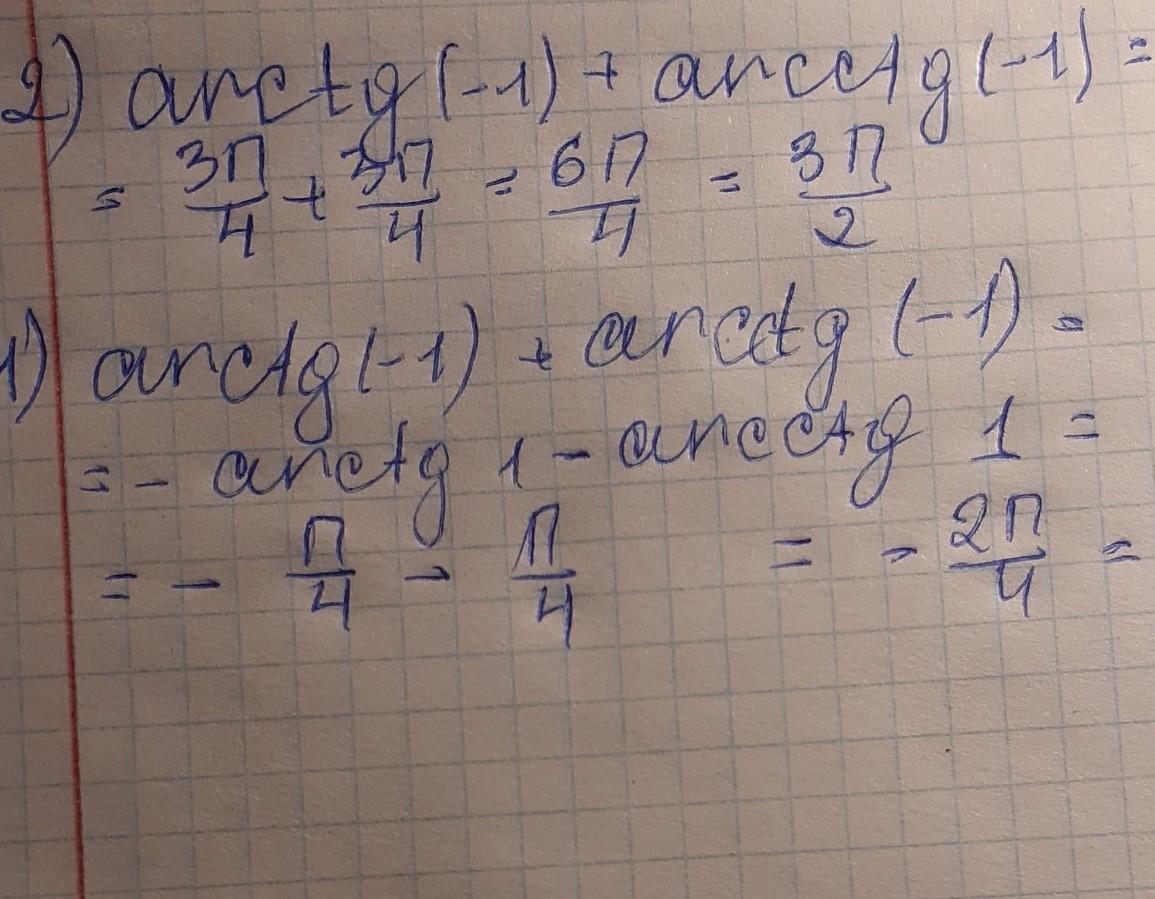 2) arctg(-1) + arcctg(-1) =
= 3π/4 + 3π/4 = 6π/4 = 3π/2
1) arctg(-1) + arcctg(-1) =
= - arctg 1 - arcctg 1 =
= - π/4 - π/4 = - 2π/4 =